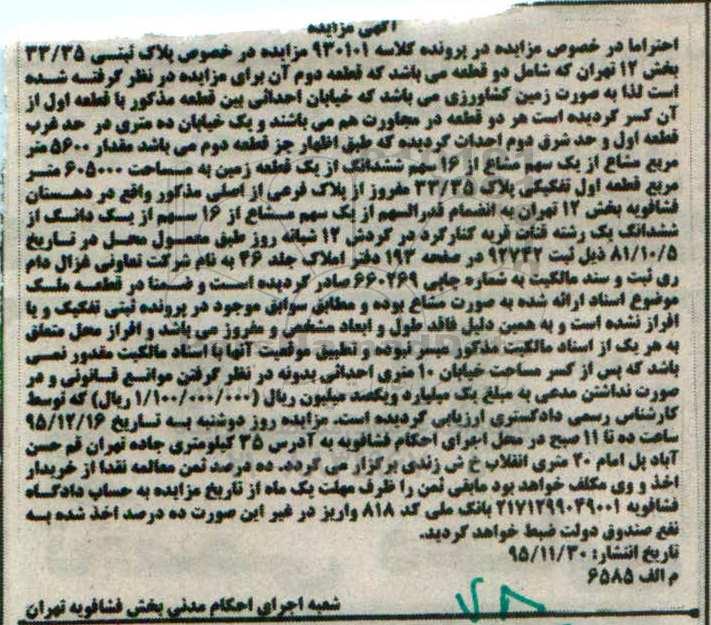 آگهی مزایده
احتراما در خصوص مزایده در پرونده کلاسه ۹۳۰۱۰۱ مزایده در خصوص پلاک ثبتسی ۳۳/۳۵
بخش ۱۲ تهران که شامل دو قطعه می باشد که قطعه دوم آن برای مزایده در نظر گرفتـه شـده
است لذا به صورت زمین کشاورزی می باشد که خیابان احداثی بین قطعه مذکور با قطعه اول از
آن کسر گردیده است هر دو قطعه در مجاورت هم می باشند و یک خیابان ده متری در حد غرب
قطعه اول و حد شرق دوم احداث گردیده که طبق اظهار جز قطعه دوم می باشد مقدار ۵۶۰۰ متر
مربع مشاع از یک سهم مشاع از ۱۶ سهم ششدانگ از یک قطعه زمین به مساحت ۶۰۵۰۰۰ متر
مربع قطعه اول تفکیکی پلاک ۳۳/۳۵ مفروز از پلاک فرعی از اصلی مذکور واقع در دهستان
فشافویه بخش ۱۲ تهران به انضمام قدرالسهم از یک سهم مشاع از ۱۶ سهم از یک دانگ از
ششدانگ یک رشته قنات قریه کنارگرد در گردش ۱۲ شبانه روز طبق معمول محل در تاریخ
۸۱/۱۰/۵ ذیل ثبت ۹۲۷۳۲ در صفحه ۱۹۳ دفتر املاک جلد ۴۶ به نام شرکت تعاونی غزال دام
ری ثبت و سند مالکیت به شماره چاپی ۶۶۰۲۶۹ صادر گردیده است و ضمنا در قطعه ملک
موضوع اسناد ارائه شده به صورت مشاع بوده و مطابق سوابق موجود در پرونده ثبتی تفکیک و یا
افراز نشده است و به همین دلیل فاقد طول و ابعاد مشخص و مفروز می باشد و افراز محل متعلق
به هر یک از اسناد مالکیت مذکور میسر نبوده و تطبیق موقعیت آنها با اسناد مالکیت مقدور نمی
باشد که پس از کسر مساحت خیابان ۱۰ متری احداثی بدونه در نظر گرفتن موانع قانونی و در
صورت نداشتن مدعی به مبلغ یک میلیارد ویکصد میلیون ریال (۱/۱۰۰/۰۰۰/۰۰۰ ریال) که توسط
کارشناس رسمی دادگستری ارزیابی گردیده است. مزایده روز دوشنبه به تاریخ ۹۵/۱۲/۱۶
ساعت ده تا ۱۱ صبح در محل اجرای احکام فشافویه به آدرس ۳۵ کیلومتری جاده تهران قم حسن
آباد پل امام ۲۰ متری انقلاب خ ش زندی برگزار می گردد. ده درصد ثمن معامله نقدا از خریدار
اخذ و وی مکلف خواهد بود مابقی ثمن را ظرف مهلت یک ماه از تاریخ مزایده به حساب دادگاه
فشافویه ۲۱۷۱۲۹۹۰۴۹۰۰۱ بانک ملی کد ۸۱۸ واریز در غیر این صورت ده درصد اخذ شده به
نفع صندوق دولت ضبط خواهد گردید.
تاریخ انتشار: ۹۵/۱۱/۳۰
م الف ۶۵۸۵
شعبه اجرای احکام مدنی بخش فشافویه تهران